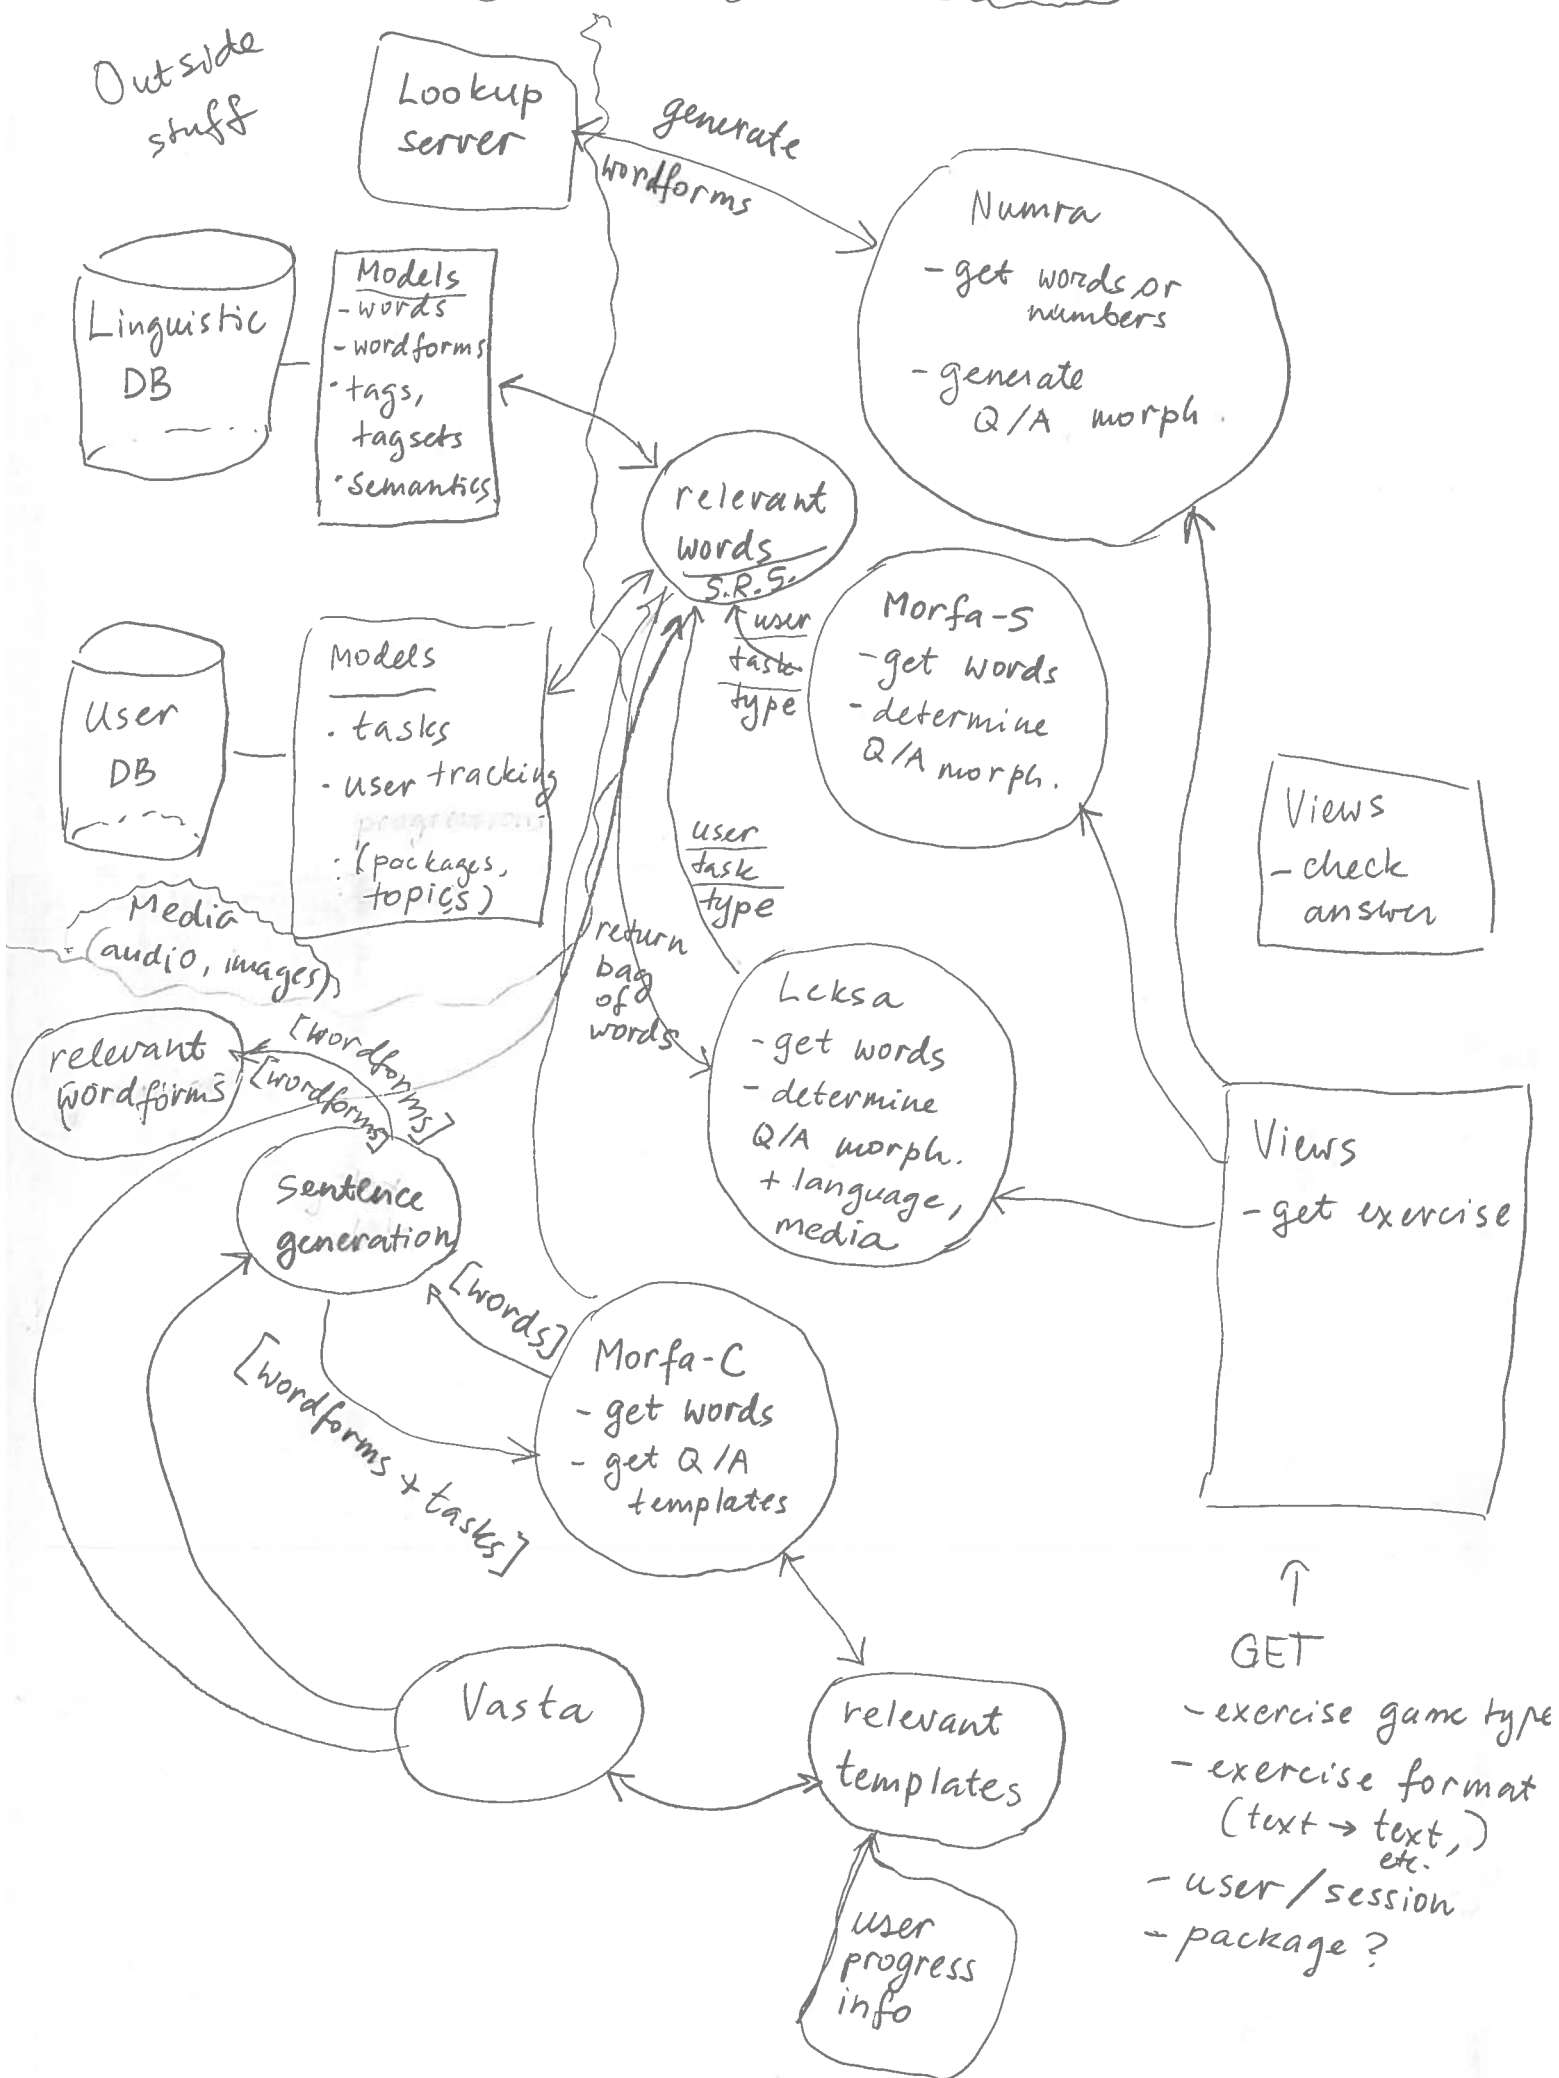 Outside
stuff
Lookup
server
generate
wordforms
Numra
- get words or
numbers
- generate
Q/A morph.
Linguistic
DB
Models
- words
- wordforms
· tags,
tagsets
· semantics
relevant
words
S.R.S.
user
task
type
Morfa-S
- get words
- determine
Q/A morph.
User
DB
Models
· tasks
· user tracking
progressions
· (packages,
topics)
Views
- check
answer
user
task
type
Media
(audio, images)
return
bag
of
words
Leksa
- get words
- determine
Q/A morph.
+ language,
media
relevant
[wordforms]
[wordforms]
[wordforms]
Views
- get exercise
sentence
generation
[words]
[wordforms + tasks]
Morfa-C
- get words
- get Q/A
templates
Vasta
relevant
templates
user
progress
info
↑
GET
- exercise game type
- exercise format
(text → text,)
etc.
- user/session
- package?